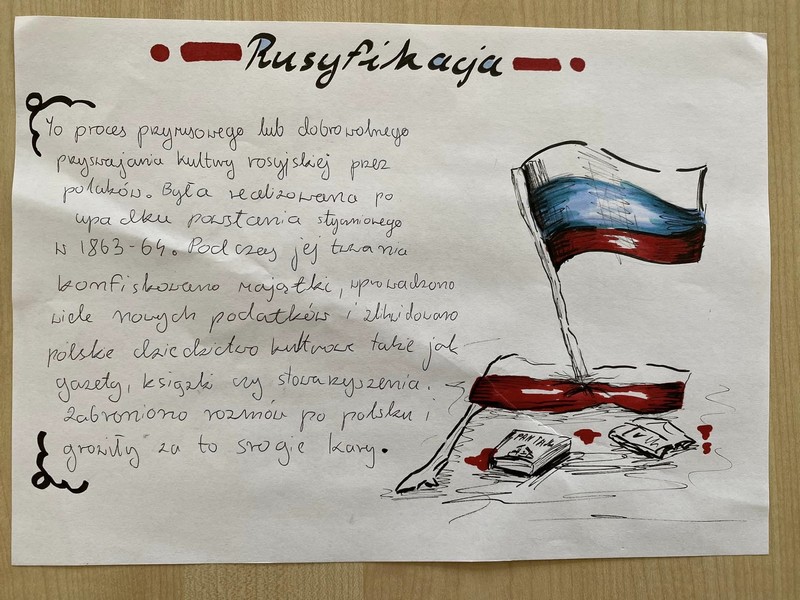 Rusyfikacja
To proces przymusowego lub dobrowolnego
przyswajania kultury rosyjskiej przez
polaków. Była realizowana po
upadku powstania styczniowego
w 1863-64. Podczas jej trwania
konfiskowano majątki, wprowadzono
wiele nowych podatków i zlikwidowano
polskie dziedzictwo kulturowe takie jak
gazety, książki czy stowarzyszenia.
Zabroniono rozmów po polsku i
groziły za to srogie kary.
PAN